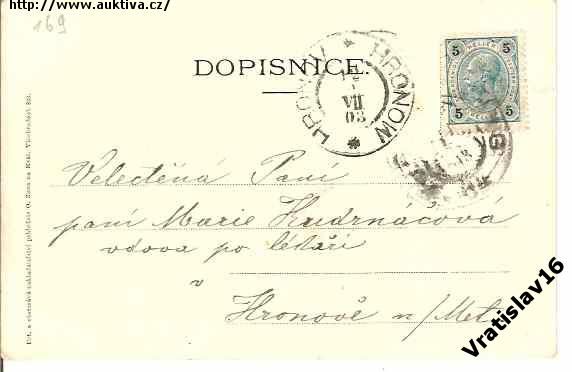 http://www.auktiva.cz/
169
DOPISNICE.
HRONOV * HRONOW *
VII
03
5 5
5 5
Velectěná Paní
paní Marie Kudrnáčová
vdova po lékaři
v
Hronově n/Met.
Vratislav16